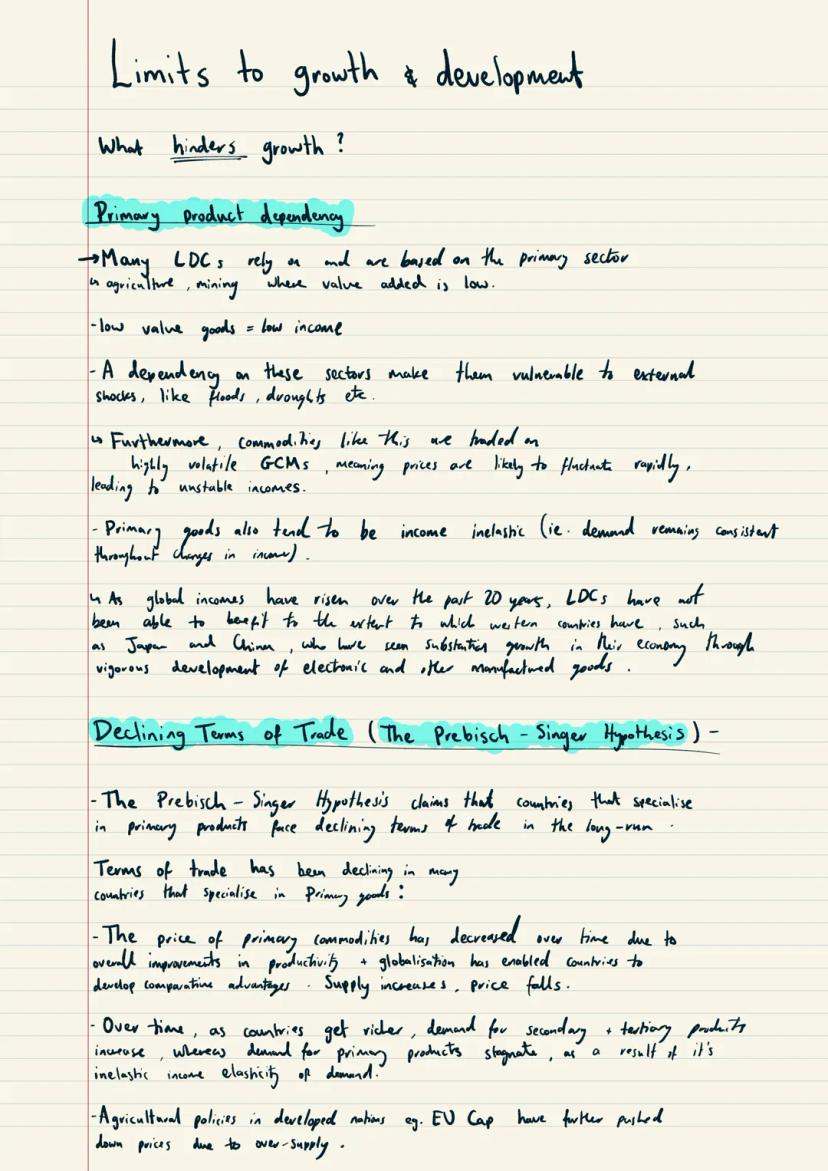 Limits to growth & development
What hinders growth?
Primary product dependency
→Many LDCs rely on and are based on the primary sector
↳ agriculture, mining where value added is low.
- low value goods = low income
- A dependency on these sectors make them vulnerable to external
shocks, like floods, droughts etc.
↳ Furthermore, commodities like this are traded on
highly volatile GCMs, meaning prices are likely to fluctuate rapidly,
leading to unstable incomes.
- Primary goods also tend to be income inelastic (ie. demand remains consistent
throughout changes in income).
↳ As global incomes have risen over the past 20 years, LDCs have not
been able to benefit to the extent to which western countries have, such
as Japan and China, who have seen substantial growth in their economy through
vigorous development of electronic and other manufactured goods.
Declining Terms of Trade (The Prebisch - Singer Hypothesis) -
- The Prebisch - Singer Hypothesis claims that countries that specialise
in primary products face declining terms of trade in the long-run.
Terms of trade has been declining in many
countries that specialise in Primary goods:
- The price of primary commodities has decreased over time due to
overall improvements in productivity + globalisation has enabled countries to
develop comparative advantages. Supply increases, price falls.
- Over time, as countries get richer, demand for secondary + tertiary products
increase, whereas demand for primary products stagnate, as a result of it's
inelastic income elasticity of demand.
- Agricultural policies in developed nations eg. EU Cap have further pushed
down prices due to over-supply.